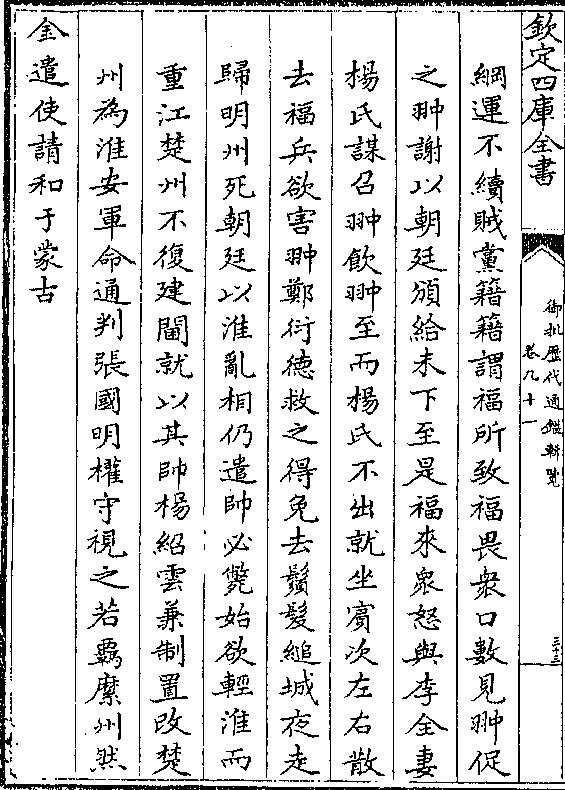 欽定四庫全書
御批歷代通鑑輯覽
卷九十一
三十三
綱運不續賊黨籍籍謂福所致福畏衆口數見翀促
之翀謝以朝廷頒給未下至是福來衆怒與李全妻
楊氏謀召翀飲翀至而楊氏不出就坐賓次左右散
去福兵欲害翀鄭衍德救之得免去鬚髮縋城夜走
歸明州死朝廷以淮亂相仍遣帥必斃始欲輕淮而
重江楚州不復建閫就以其帥楊紹雲兼制置改楚
州為淮安軍命通判張國明權守視之若羈縻州然
金遣使請和于蒙古